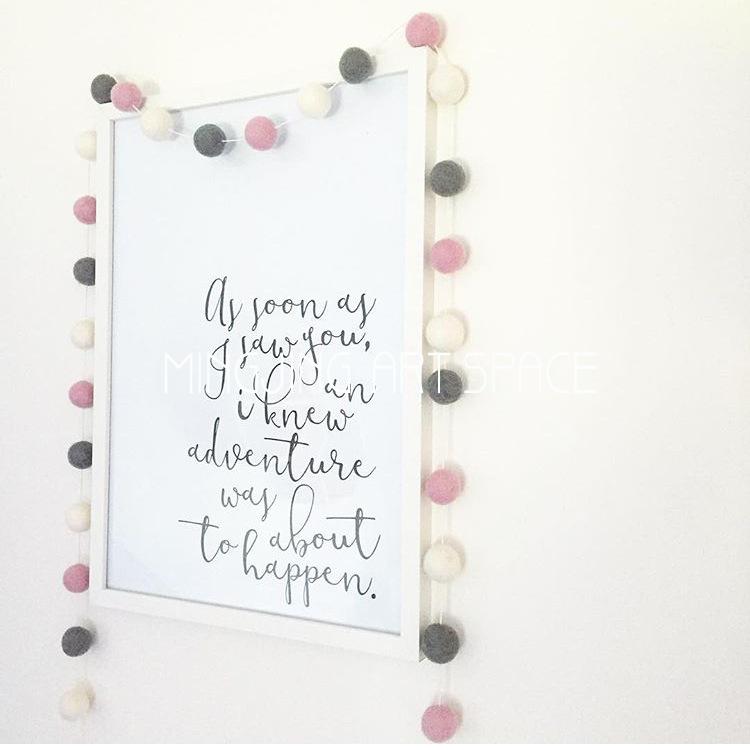 As soon as
I saw you,
i knew an
adventure
was about
to happen.
MINGJING ART SPACE